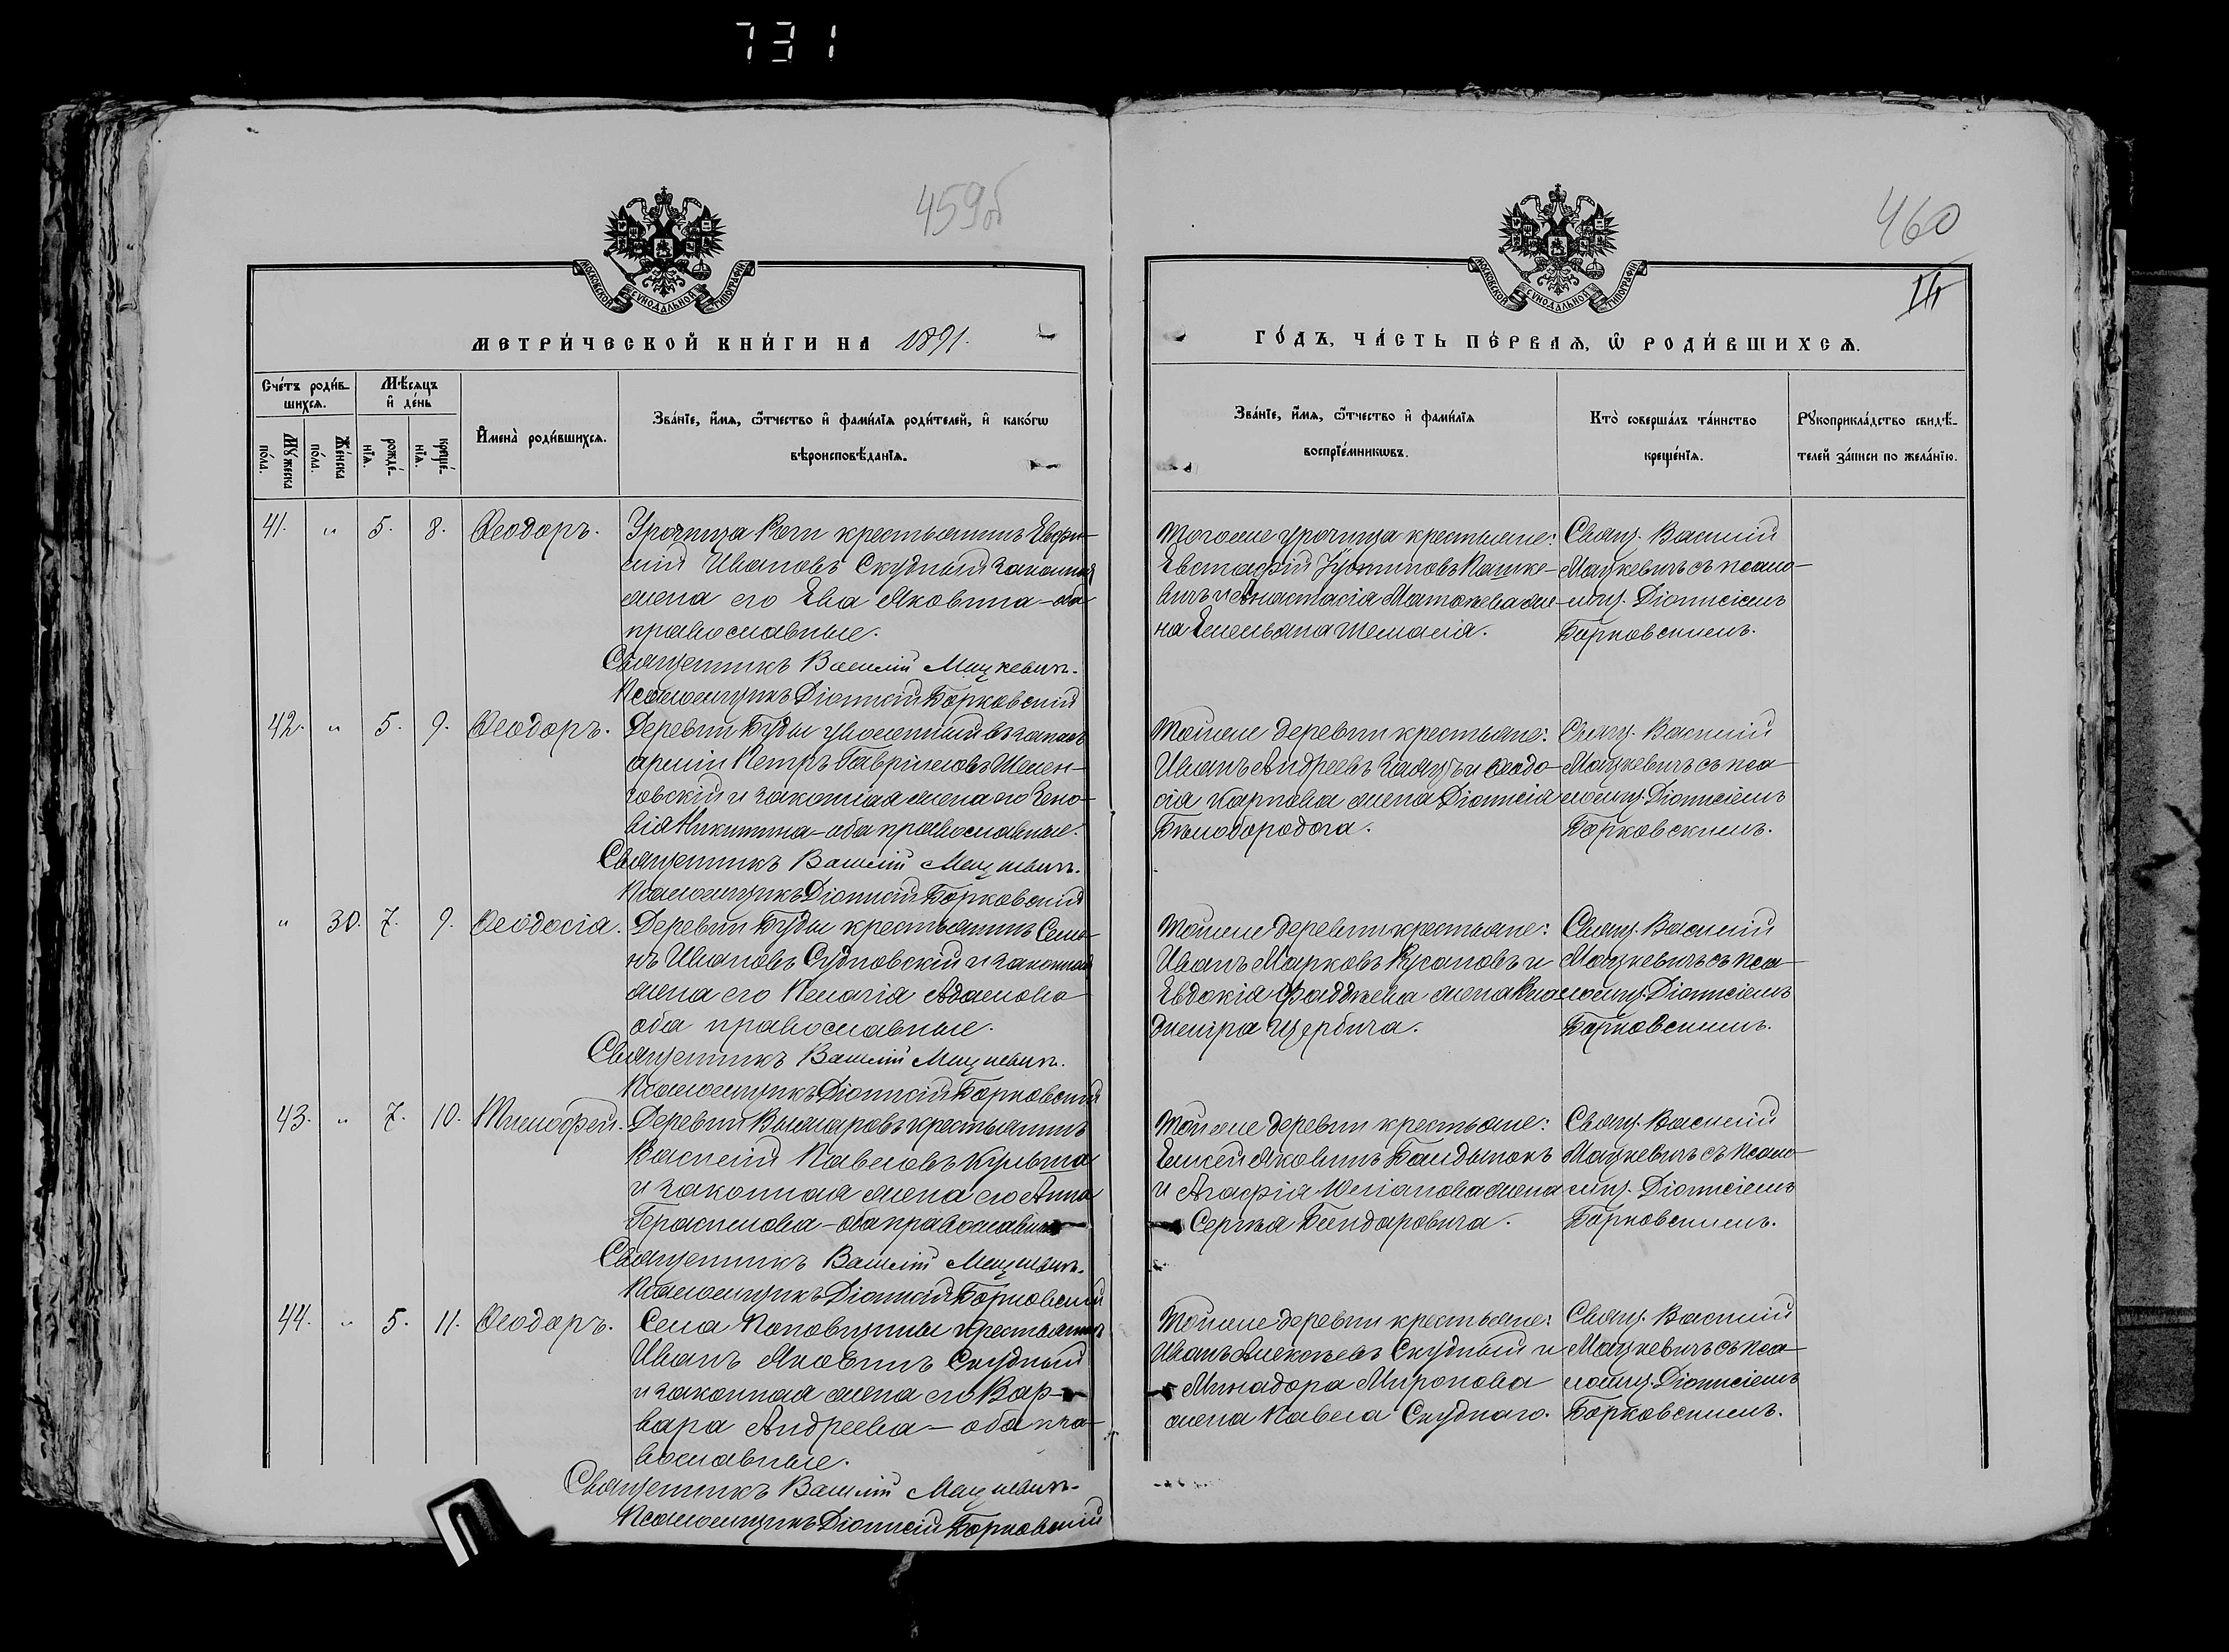 731
459об
460
МОСКОВСКОЙ СѴНОДАЛЬНОЙ ТИПОГРАФІИ
МОСКОВСКОЙ СѴНОДАЛЬНОЙ ТИПОГРАФІИ
МЕТРИ́ЧЕСКОЙ КНИ́ГИ НА 1891.
ГО́ДЪ, ЧА́СТЬ ПЕ́РВАЯ, Ѡ РОДИ́ВШИХСЯ.
Сче́тъ роди́в-
шихся.
Мѣ́сяцъ
и де́нь
Му́жеска по́ла.
Же́нска по́ла.
рожде́-нія.
креще́-нія.
Имена̀ роди́вшихся.
Зва́ніе, и́мя, ѻ́тчество и фами́лія роди́телей, и како́гѡ
вѣроисповѣ́данія.
Зва́ніе, и́мя, ѻ́тчество и фами́лія
воспріе́мникωвъ.
Кто̀ соверша́лъ та́инство
креще́нія.
Рꙋкоприкла́дство свидѣ́-
телей за́писи по жела́нію.
41. " 5. 8. Ѳеодоръ.
Урочища Роги крестьянинъ
Ивановъ Скудный законная
жена его Ева Яковлина – оба
православные.
Священникъ Василій Мацкевичъ.
Псаломщикъ Діонисій Борковскій
Тогоже урочища крестьяне:
Евстафій Устиновъ Пашке-
вичъ и Анастасія же-
на Емельяна Шемаля.
Свящ. Василій
Мацкевичъ съ псало-
мщ. Діонисіемъ
Борковскимъ.
42. " 5. 9. Ѳеодоръ.
Деревни Буды уволенный въ запасъ
арміи Петръ Гавриловъ Желен-
говскій и законная жена его Зено-
вія Никитина – оба православные.
Священникъ Василій Мацкевичъ.
Псаломщикъ Діонисій Борковскій
Тойже деревни крестьяне:
Иванъ Андреевъ и Ѳеодо-
сія Карпова жена Діонисія
Бѣлобородога.
Свящ. Василій
Мацкевичъ съ пса-
ломщ. Діонисіемъ
Борковскимъ.
" 30. 7. 9. Ѳеодосія.
Деревни Буды крестьянинъ Семе-
нъ Ивановъ и законная
жена его Пелагія Адамова
оба православные.
Священникъ Василій Мацкевичъ.
Псаломщикъ Діонисій Борковскій
Тойже деревни крестьяне:
Иванъ Марковъ и
Евдокія Фаддѣева жена Вла-
димира Щербича.
Свящ. Василій
Мацкевичъ съ пса-
ломщ. Діонисіемъ
Борковскимъ.
43. " 7. 10. Тимофей.
Деревни крестьянинъ
Василій Павловъ
и законная жена его Анна
Герасимова – оба православные
Священникъ Василій Мацкевичъ.
Псаломщикъ Діонисій Борковскій
Тойже деревни крестьяне:
Яковлинъ
и Агафія жена
Сергѣя Бендаровича.
Свящ. Василій
Мацкевичъ съ псало-
мщ. Діонисіемъ
Борковскимъ.
44. " 5. 11. Ѳеодоръ.
Села Поповщины крестьянинъ
Иванъ Яковлинъ Скудный
и законная жена его Вар-
вара Андреева – оба пра-
вославные.
Священникъ Василій Мацкевичъ.
Псаломщикъ Діонисій Борковскій
Тойже деревни крестьяне:
Иванъ Алексѣевъ Скудный и
Минадора Миронова
жена Павла Скуднаго.
Свящ. Василій
Мацкевичъ съ пса-
ломщ. Діонисіемъ
Борковскимъ.